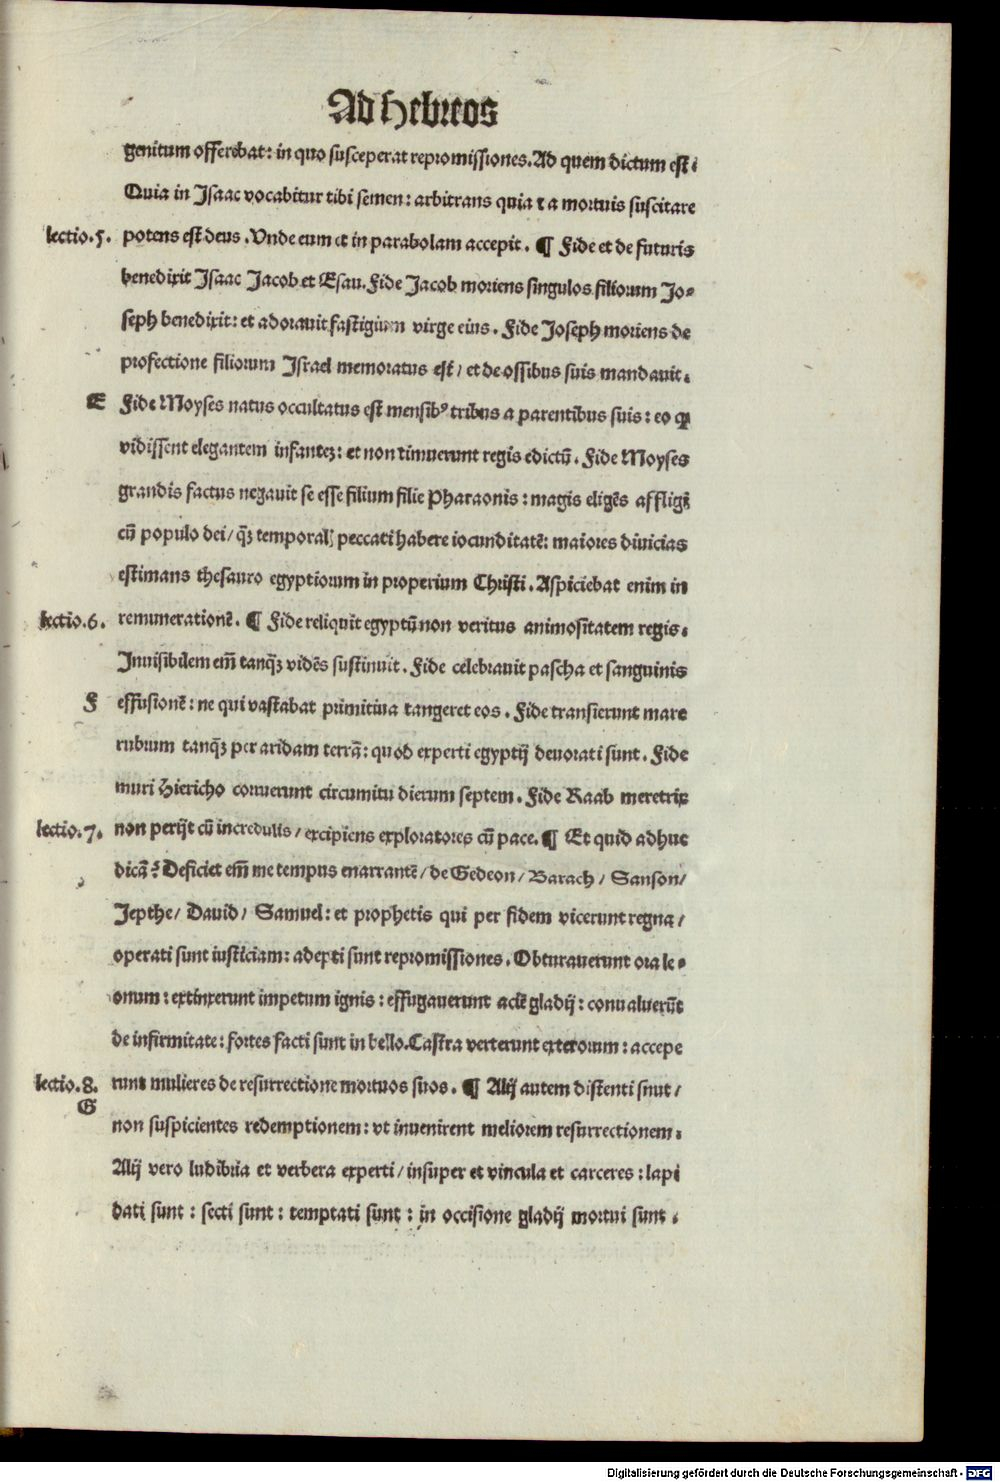 Ad Hebreos
genitum offerebat: in quo susceperat repromissiones. Ad quem dictum est.
Quia in Isaac vocabitur tibi semen: arbitrans quia ⁊ a mortuis suscitare
lectio.5. potens est deus. Unde eum et in parabolam accepit. ¶ Fide et de futuris
benedixit Isaac Jacob et Esau. Fide Jacob moriens singulos filiorum Jo⸗
seph benedixit: et adoravit fastigium virge eius. Fide Joseph moriens de
profectione filiorum Israel memoratus est / et de ossibus suis mandavit.
E Fide Moyses natus occultatus est mensibꝰ tribus a parentibus suis: eo ꝙ
vidissent elegantem infantez: et non timuerunt regis edictū. Fide Moyses
grandis factus negavit se esse filium filie Pharaonis: magis eligēs affligi
cū populo dei / q̄ꝫ temporalꝭ peccati habere iocunditatē: maiores divicias
estimans thesauro egyptiorum in properium Christi. Aspiciebat enim in
lectio.6. remunerationē. ¶ Fide reliquit egyptū non veritus animositatem regis.
Invisibilem em̄ tanq̄ꝫ vidēs sustinuit. Fide celebravit pascha et sanguinis
F effusionē: ne qui vastabat primitiva tangeret eos. Fide transierunt mare
rubrum tanq̄ꝫ per aridam terrā: quod experti egyptij devorati sunt. Fide
muri Hiericho corruerunt circumitu dierum septem. Fide Raab meretrix
lectio.7. non perijt cū incredulis / excipiens exploratores cū pace. ¶ Et quid adhuc
dicā? Deficiet em̄ me tempus enarrantē / de Gedeon / Barach / Sanson /
Jepthe / David / Samuel: et prophetis qui per fidem vicerunt regna /
operati sunt iusticiam: adepti sunt repromissiones. Obturaverunt ora le⸗
onum: extinxerunt impetum ignis: effugaverunt aciē gladij: convaluerūt
de infirmitate: fortes facti sunt in bello. Castra verterunt exterorum: accepe
lectio.8. runt mulieres de resurrectione mortuos suos. ¶ Alij autem distenti snut /
G
non suspicientes redemptionem: vt invenirent meliorem resurrectionem.
Alij vero ludibria et verbera experti / insuper et vincula et carceres: lapi
dati sunt: secti sunt: temptati sunt: in occisione gladij mortui sunt.
Digitalisierung gefördert durch die Deutsche Forschungsgemeinschaft - DFG